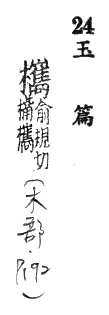 24 玉篇
欈俞規切桶欈(木部.P192)